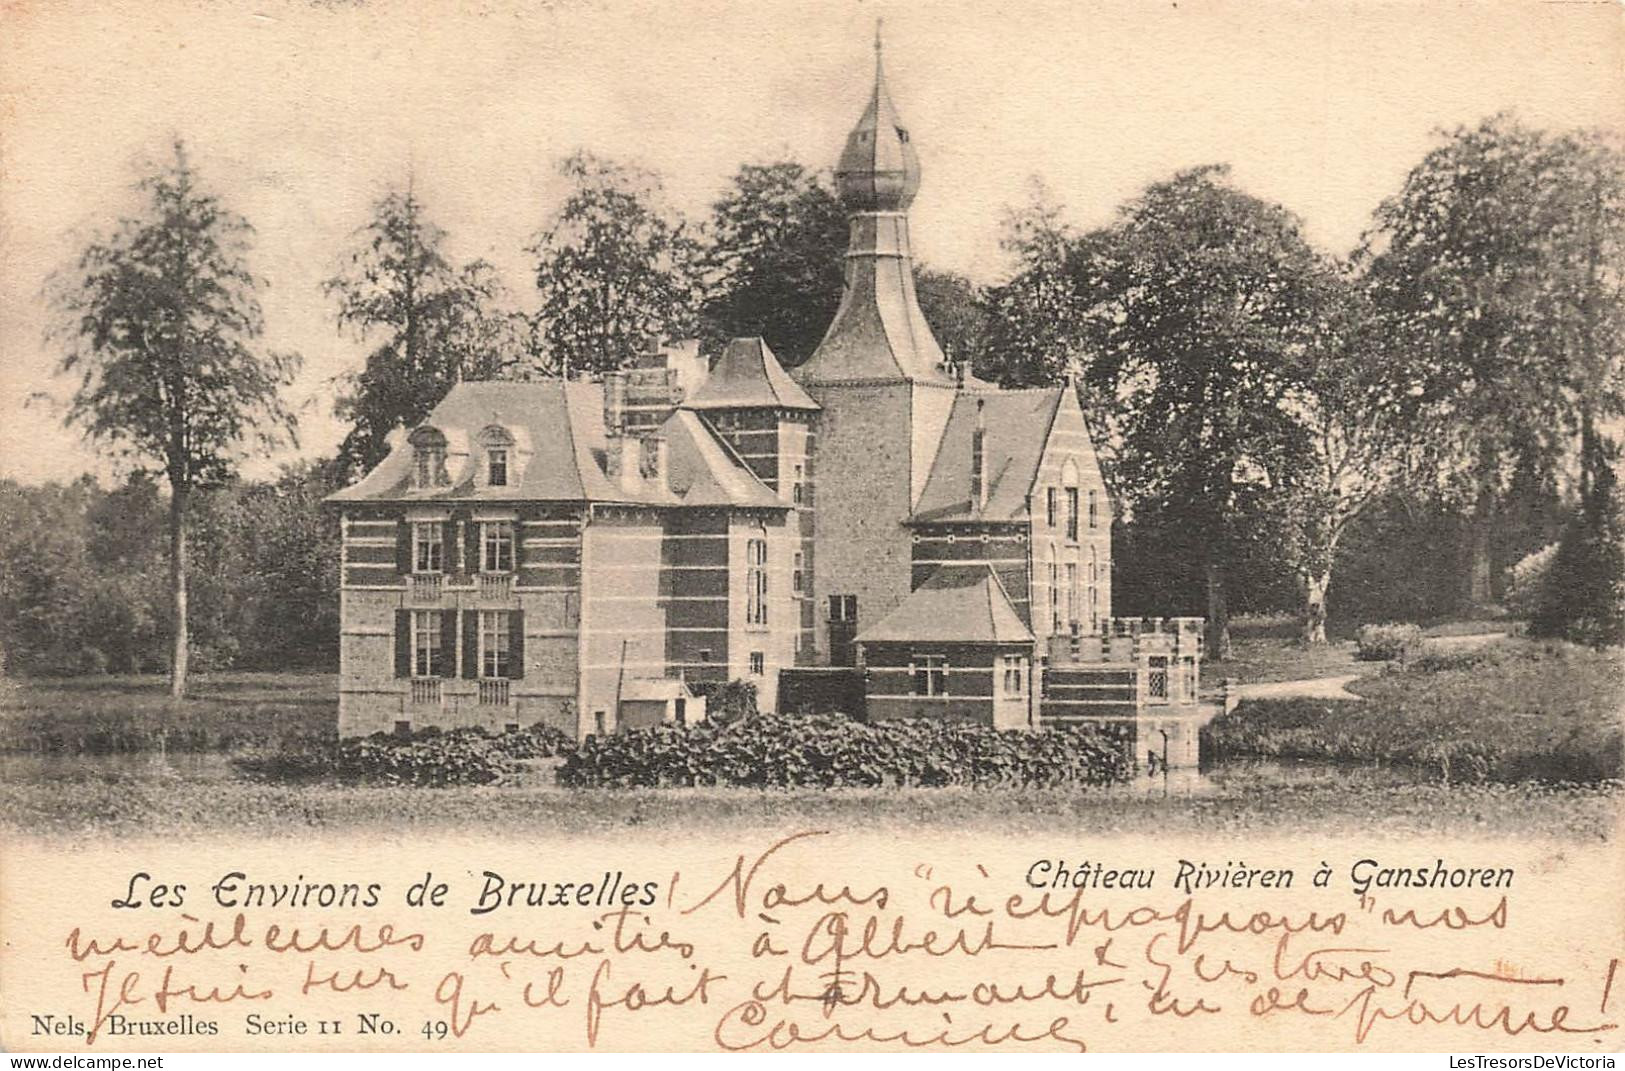 Les Environs de Bruxelles
Château Rivièren à Ganshoren
! Nous "réciproquons" nos
meilleures amitiés à Albert & Gustave
Je suis sur qu'il fait charmant, en
Nels, Bruxelles Serie 11 No. 49
LesTresorsDeVictoria